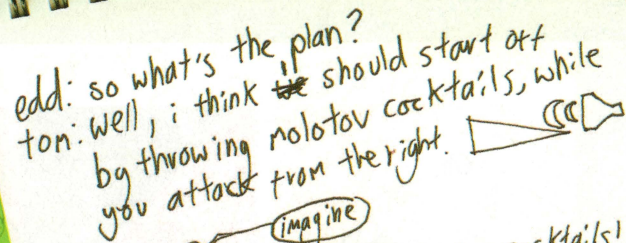 edd: so what's the plan?
tom: well, i think should start off
by throwing molotov cocktails, while
you attack from the right.
imagine
ktails!